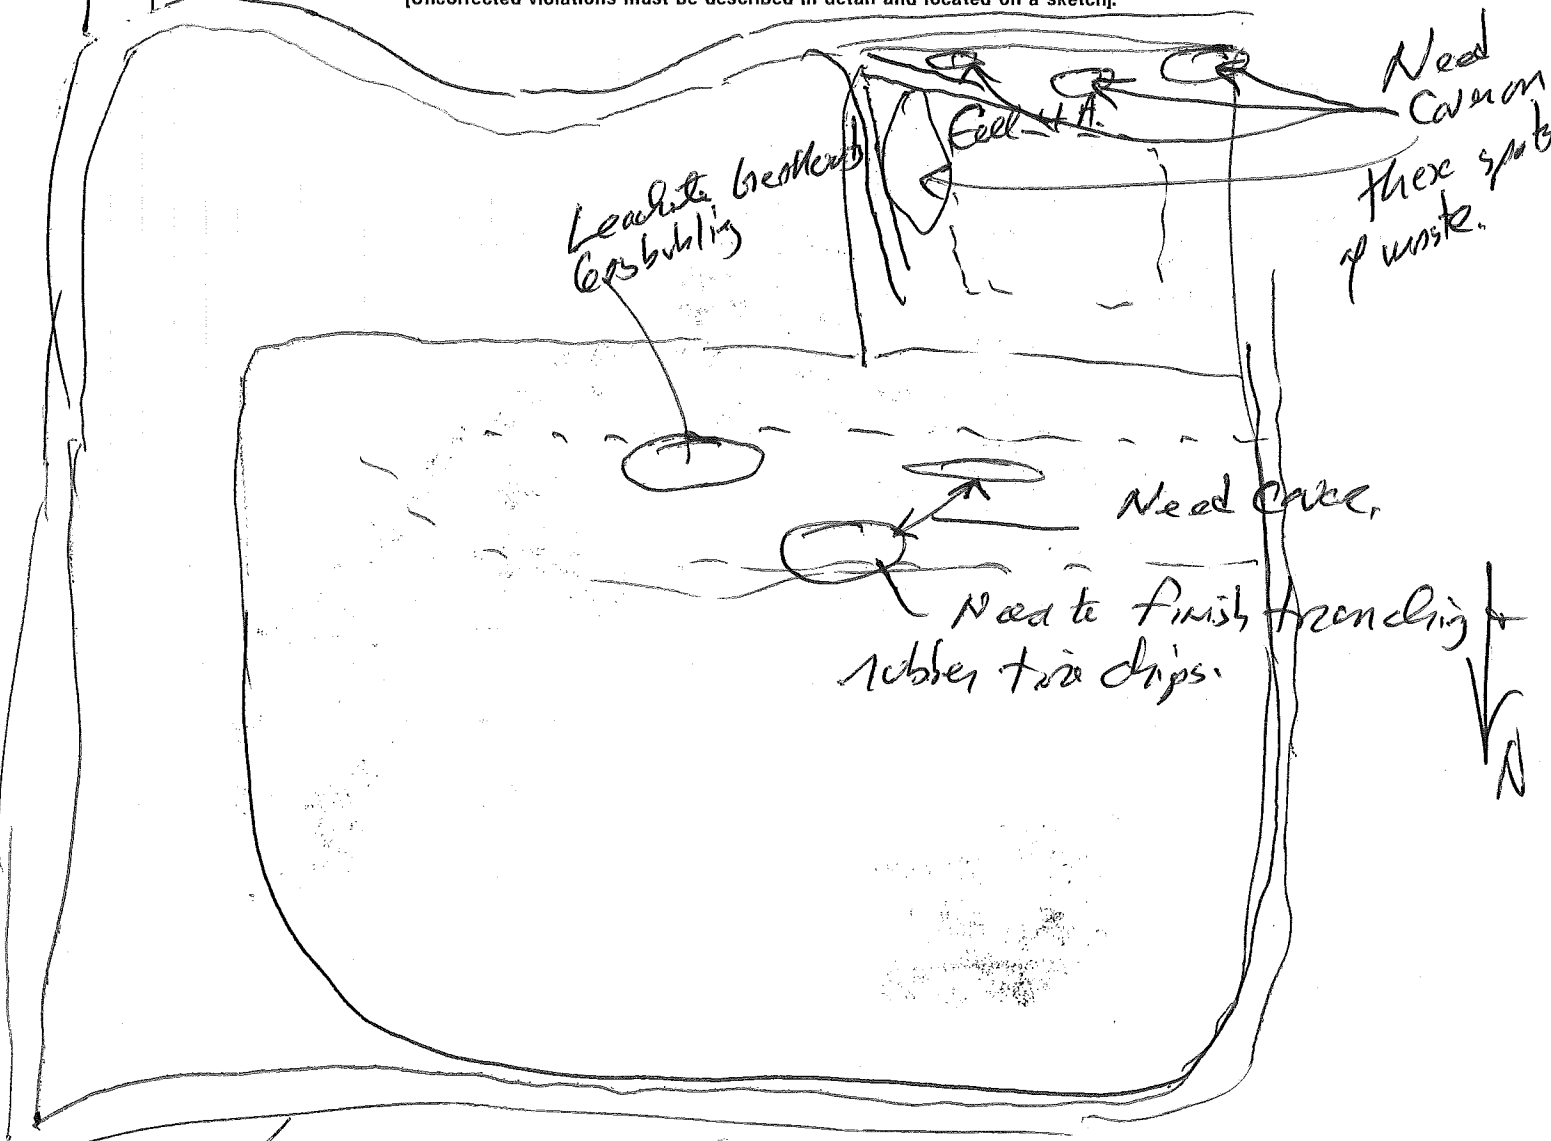 [Uncorrected violations must be described in detail and located on a sketch].
Need
Cover on
these spots
of waste.
Cell 4A.
Leachate breakout
Gas bubling
Need cover.
Need to finish trenching +
rubber tire chips.
N